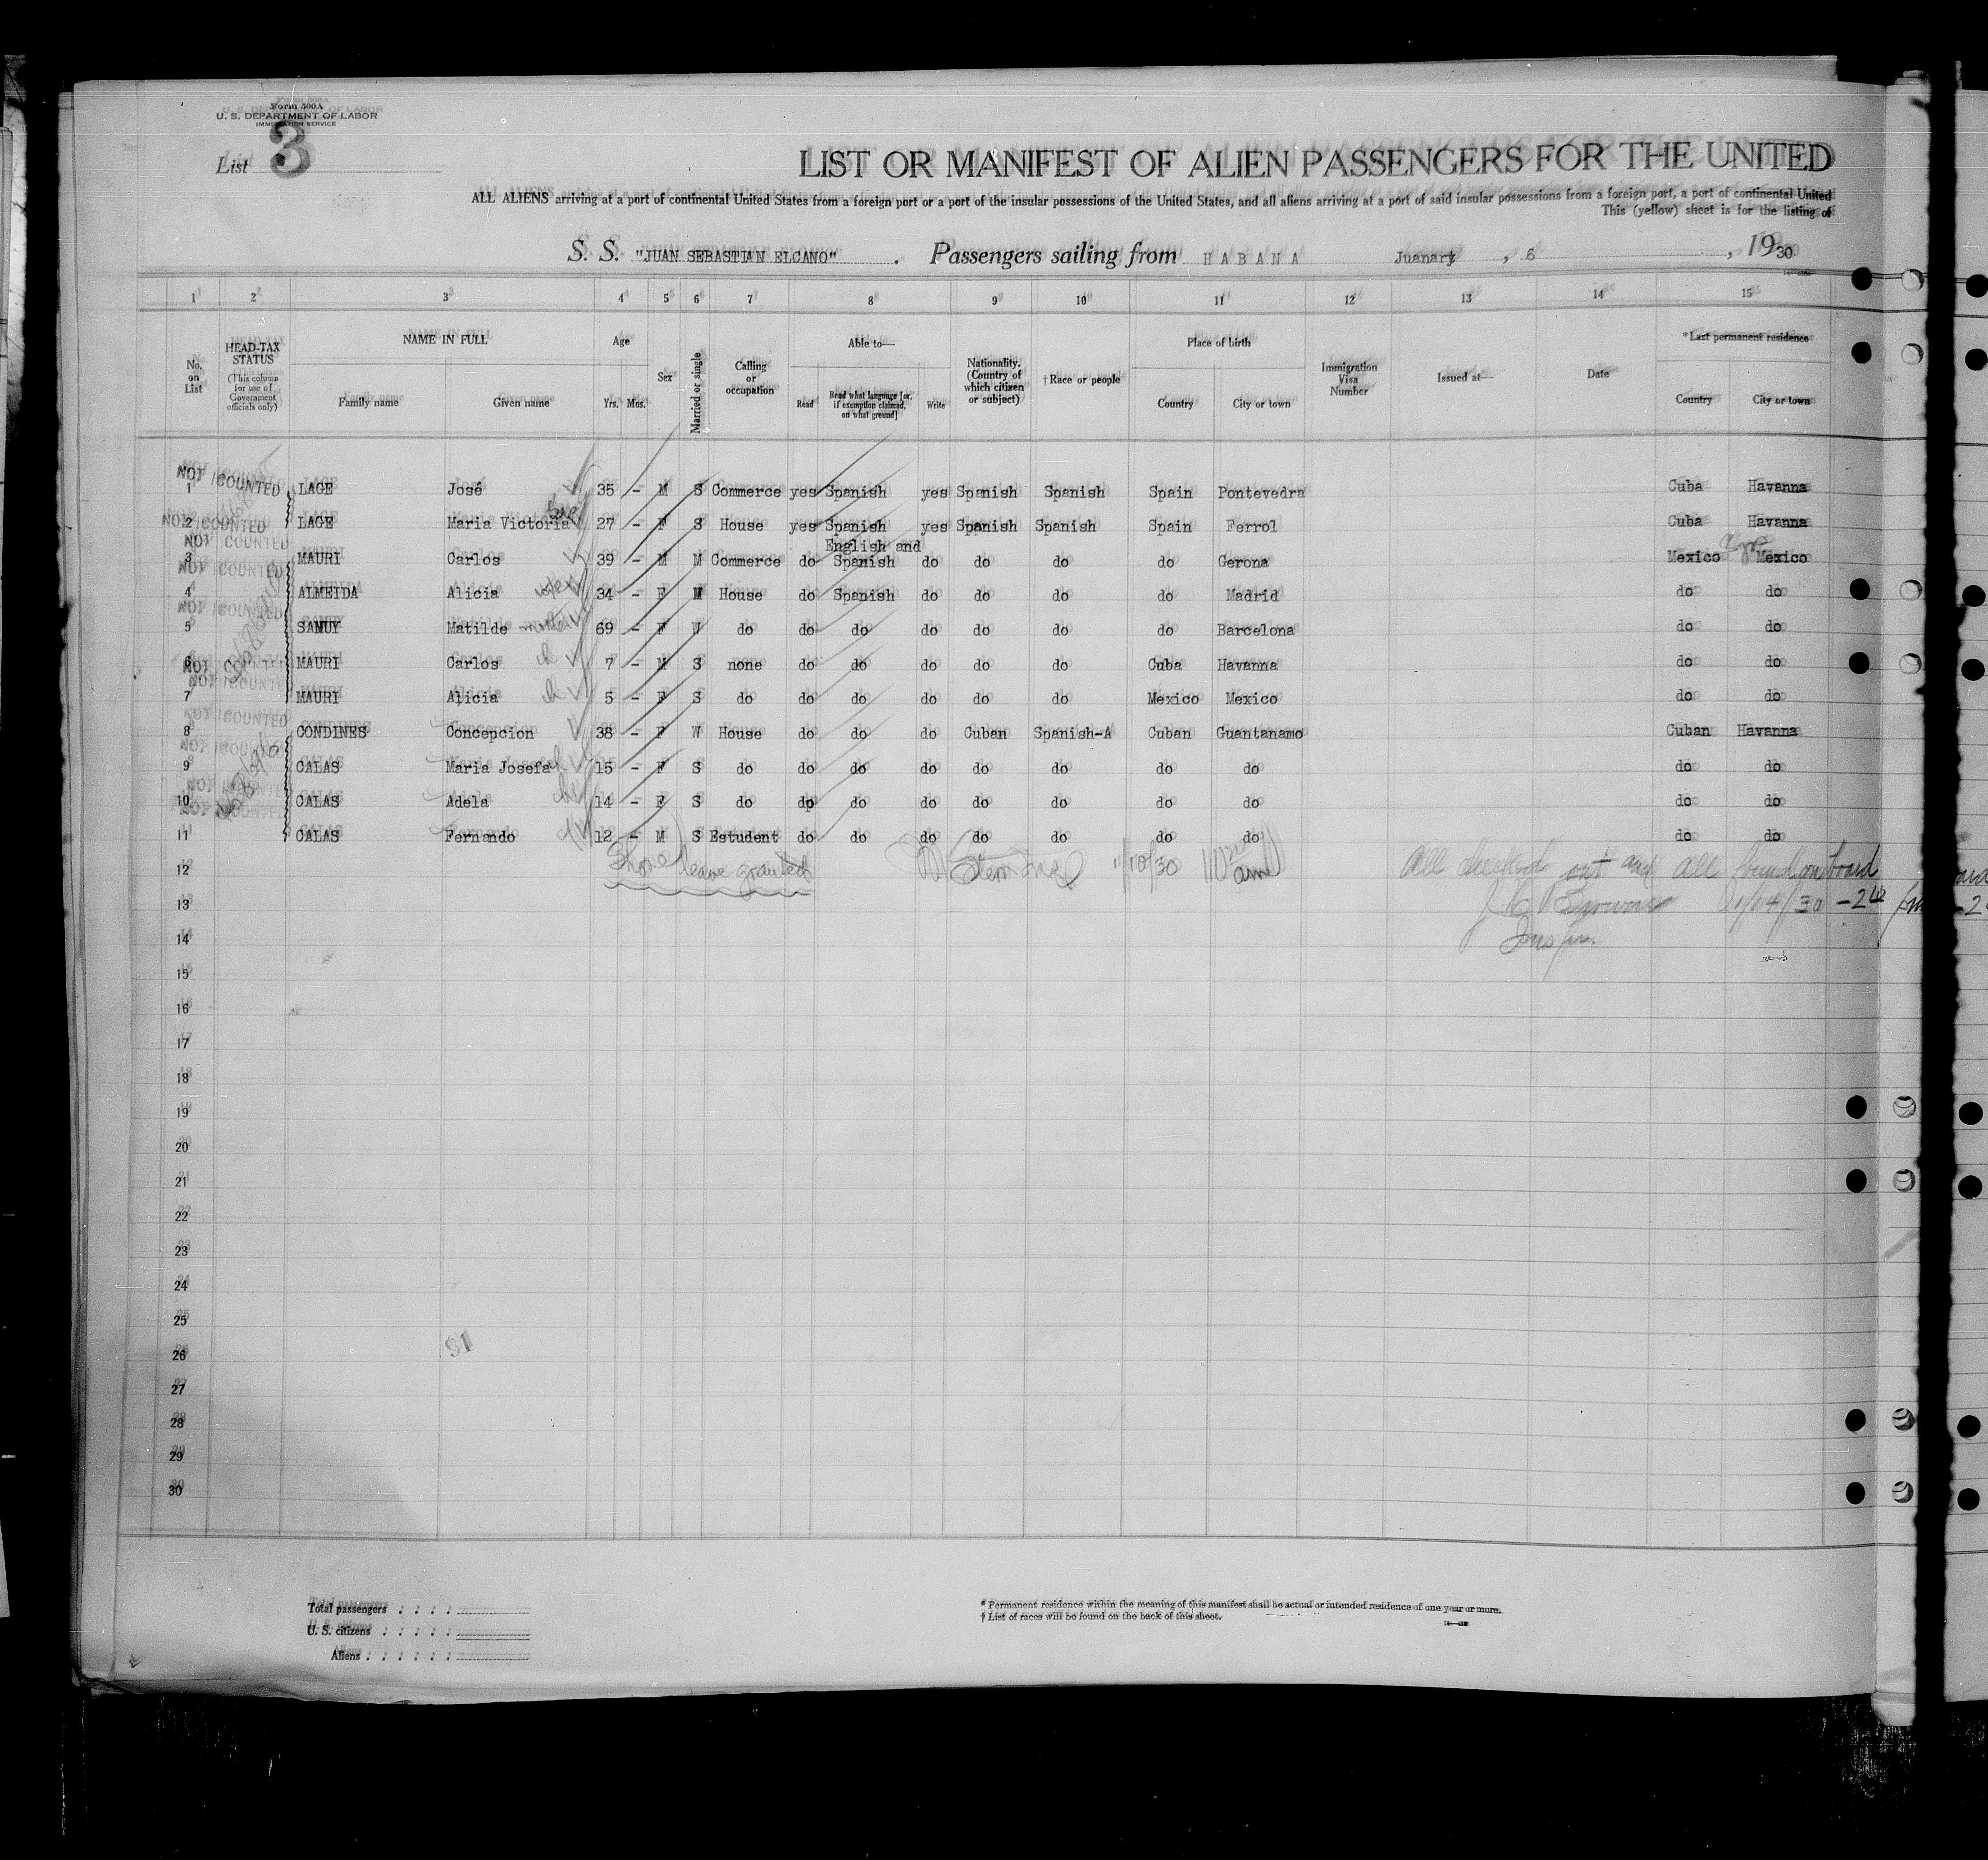 Form 500A
U. S. DEPARTMENT OF LABOR
IMMIGRATION SERVICE
List 3
LIST OR MANIFEST OF ALIEN PASSENGERS FOR THE UNITED
ALL ALIENS arriving at a port of continental United States from a foreign port or a port of the insular possessions of the United States, and all aliens arriving at a port of said insular possessions from a foreign port, a port of continental United
This (yellow) sheet is for the listing of
S. S. "JUAN SEBASTIAN ELCANO" . Passengers sailing from HABANA Juanary , 6 , 1930
1 2 3 4 5 6 7 8 9 10 11 12 13 14 15
No. on List
HEAD-TAX STATUS
(This column for use of Government officials only)
NAME IN FULL
Family name Given name
Age
Yrs. Mos.
Sex
Married or single
Calling or occupation
Able to—
Read Read what language [or, if exemption claimed, on what ground] Write
Nationality. (Country of which citizen or subject)
†Race or people
Place of birth
Country City or town
Immigration Visa Number
Issued at—
Date
*Last permanent residence
Country City or town
NOT COUNTED
1 LAGE José 35 - M S Commerce yes Spanish yes Spanish Spanish Spain Pontevedra Cuba Havanna
NOT COUNTED
2 LAGE Maria Victoria 27 - F S House yes Spanish yes Spanish Spanish Spain Ferrol Cuba Havanna
NOT COUNTED
3 MAURI Carlos 39 - M M Commerce do English and Spanish do do do do Gerona Mexico Mexico
NOT COUNTED
4 ALMEIDA Alicia wife 34 - F M House do Spanish do do do do Madrid do do
NOT COUNTED
5 SAMUY Matilde mother 69 - F W do do do do do do do Barcelona do do
NOT COUNTED
6 MAURI Carlos ch 7 - M S none do do do do do Cuba Havanna do do
NOT COUNTED
7 MAURI Alicia ch 5 - F S do do do do do do Mexico Mexico do do
NOT COUNTED
8 CONDINES Concepcion 38 - F W House do do do Cuban Spanish-A Cuban Guantanamo Cuban Havanna
NOT COUNTED
9 CALAS Maria Josefa ch 15 - F S do do do do do do do do do do
NOT COUNTED
10 CALAS Adela ch 14 - F S do dp do do do do do do do do
NOT COUNTED
11 CALAS Fernando ch 12 - M S Estudent do do do do do do do do do
Shore leave granted 1/10/30 am
All checked out and all found on board
1/14/30 -2
Inspr.
12
13
14
15
16
17
18
19
20
21
22
23
24
25
26
27
28
29
30
91
Total passengers : : : :
U. S. citizens : : : : :
Aliens : : : : : :
* Permanent residence within the meaning of this manifest shall be actual or intended residence of one year or more.
† List of races will be found on the back of this sheet.